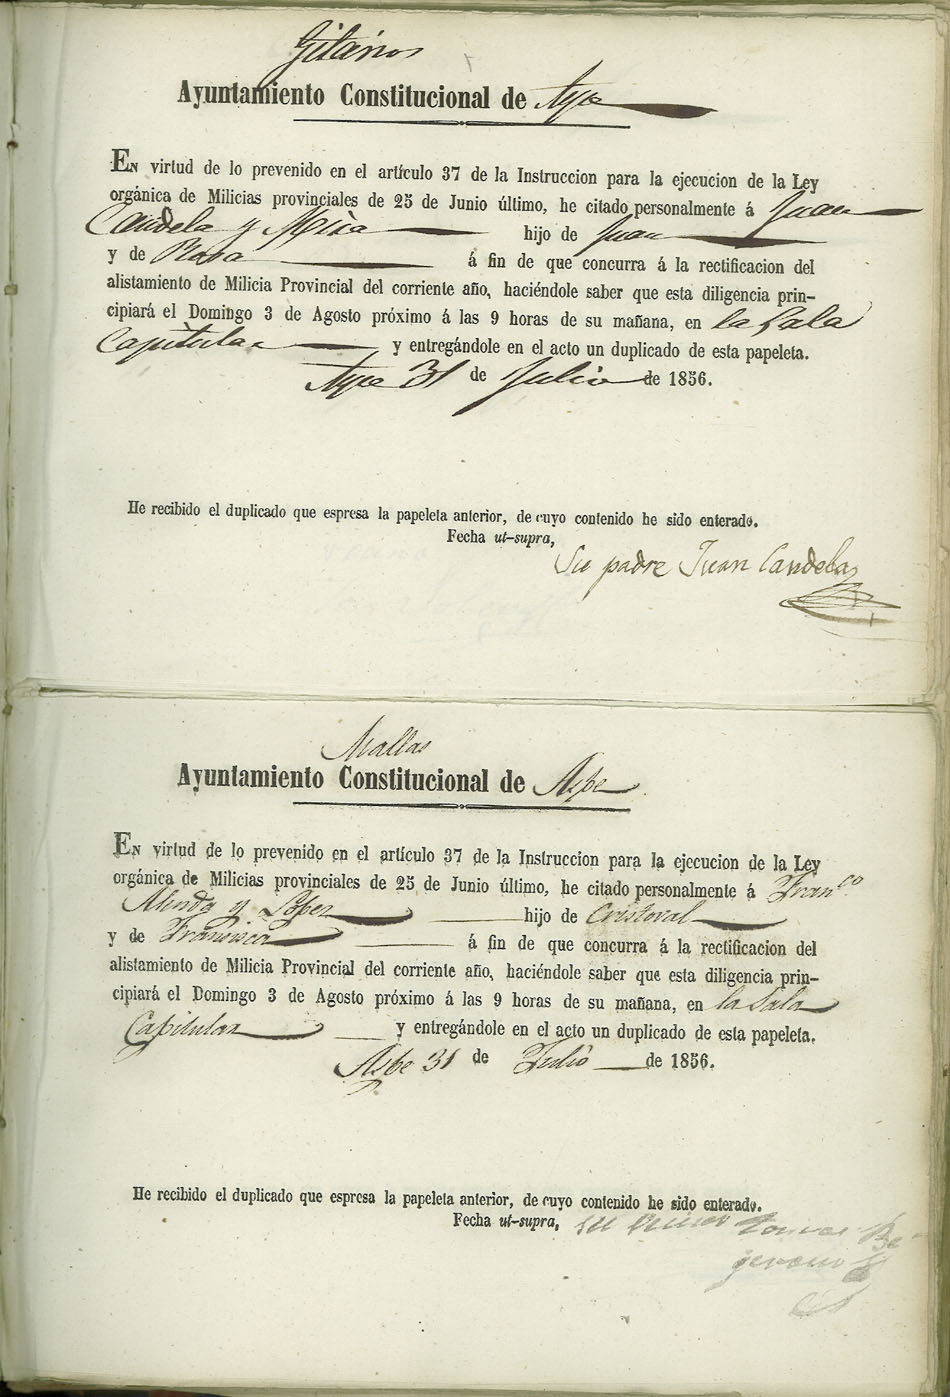 Gitanos
Ayuntamiento Constitucional de Aspe
En virtud de lo prevenido en el artículo 37 de la Instruccion para la ejecucion de la Ley
orgánica de Milicias provinciales de 25 de Junio último, he citado personalmente á Juan
Candela y Mira hijo de Juan
y de Rosa á fin de que concurra á la rectificacion del
alistamiento de Milicia Provincial del corriente año, haciéndole saber que esta diligencia prin-
cipiará el Domingo 3 de Agosto próximo á las 9 horas de su mañana, en la Sala
Capitular y entregándole en el acto un duplicado de esta papeleta.
Aspe 31 de Julio de 1856.
He recibido el duplicado que espresa la papeleta anterior, de cuyo contenido he sido enterado.
Fecha ut-supra,
Su padre Juan Candela
Mallas
Ayuntamiento Constitucional de Aspe
En virtud de lo prevenido en el artículo 37 de la Instruccion para la ejecucion de la Ley
orgánica de Milicias provinciales de 25 de Junio último, he citado personalmente á Franco
Alenda y Lopez hijo de Cristoval
y de Francisca á fin de que concurra á la rectificacion del
alistamiento de Milicia Provincial del corriente año, haciéndole saber que esta diligencia prin-
cipiará el Domingo 3 de Agosto próximo á las 9 horas de su mañana, en la Sala
Capitular y entregándole en el acto un duplicado de esta papeleta.
Aspe 31 de Julio de 1856.
He recibido el duplicado que espresa la papeleta anterior, de cuyo contenido he sido enterado.
Fecha ut-supra, su